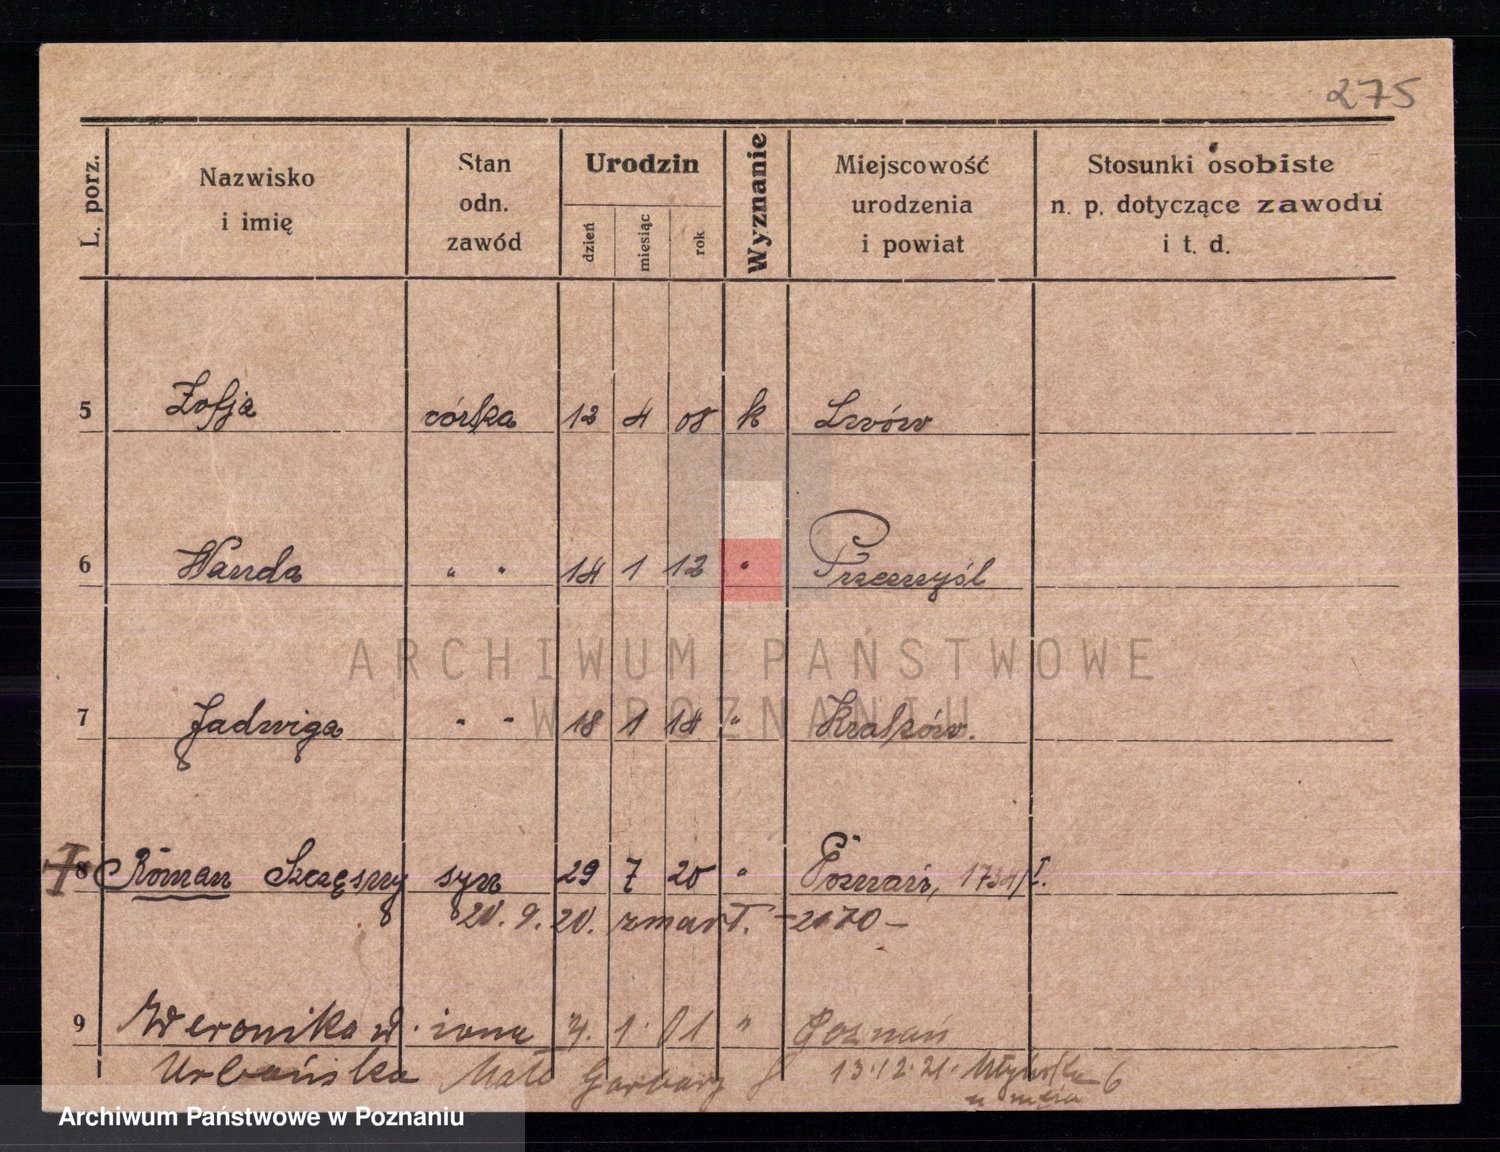 275
L. porz. Nazwisko i imię Stan odn. zawód Urodzin dzień miesiąc rok Wyznanie Miejscowość urodzenia i powiat Stosunki osobiste n. p. dotyczące zawodu i t. d.
5 Zofja córka 12 4 08 k Lwów
6 Wanda " " 14 1 12 " Przemyśl
ARCHIWUM PAŃSTWOWE
W POZNANIU
7 Jadwiga " " 18 1 14 " Kraków.
8 Roman Szczęsny syn 29 7 20 " Poznań, 1734/I.
20. 9. 20. zmarł. – 2170 –
9 Weronika żona 4. 1. 01 " Poznań
Urbańska Małe Garbary 13.12.21. 6
u męża
Archiwum Państwowe w Poznaniu